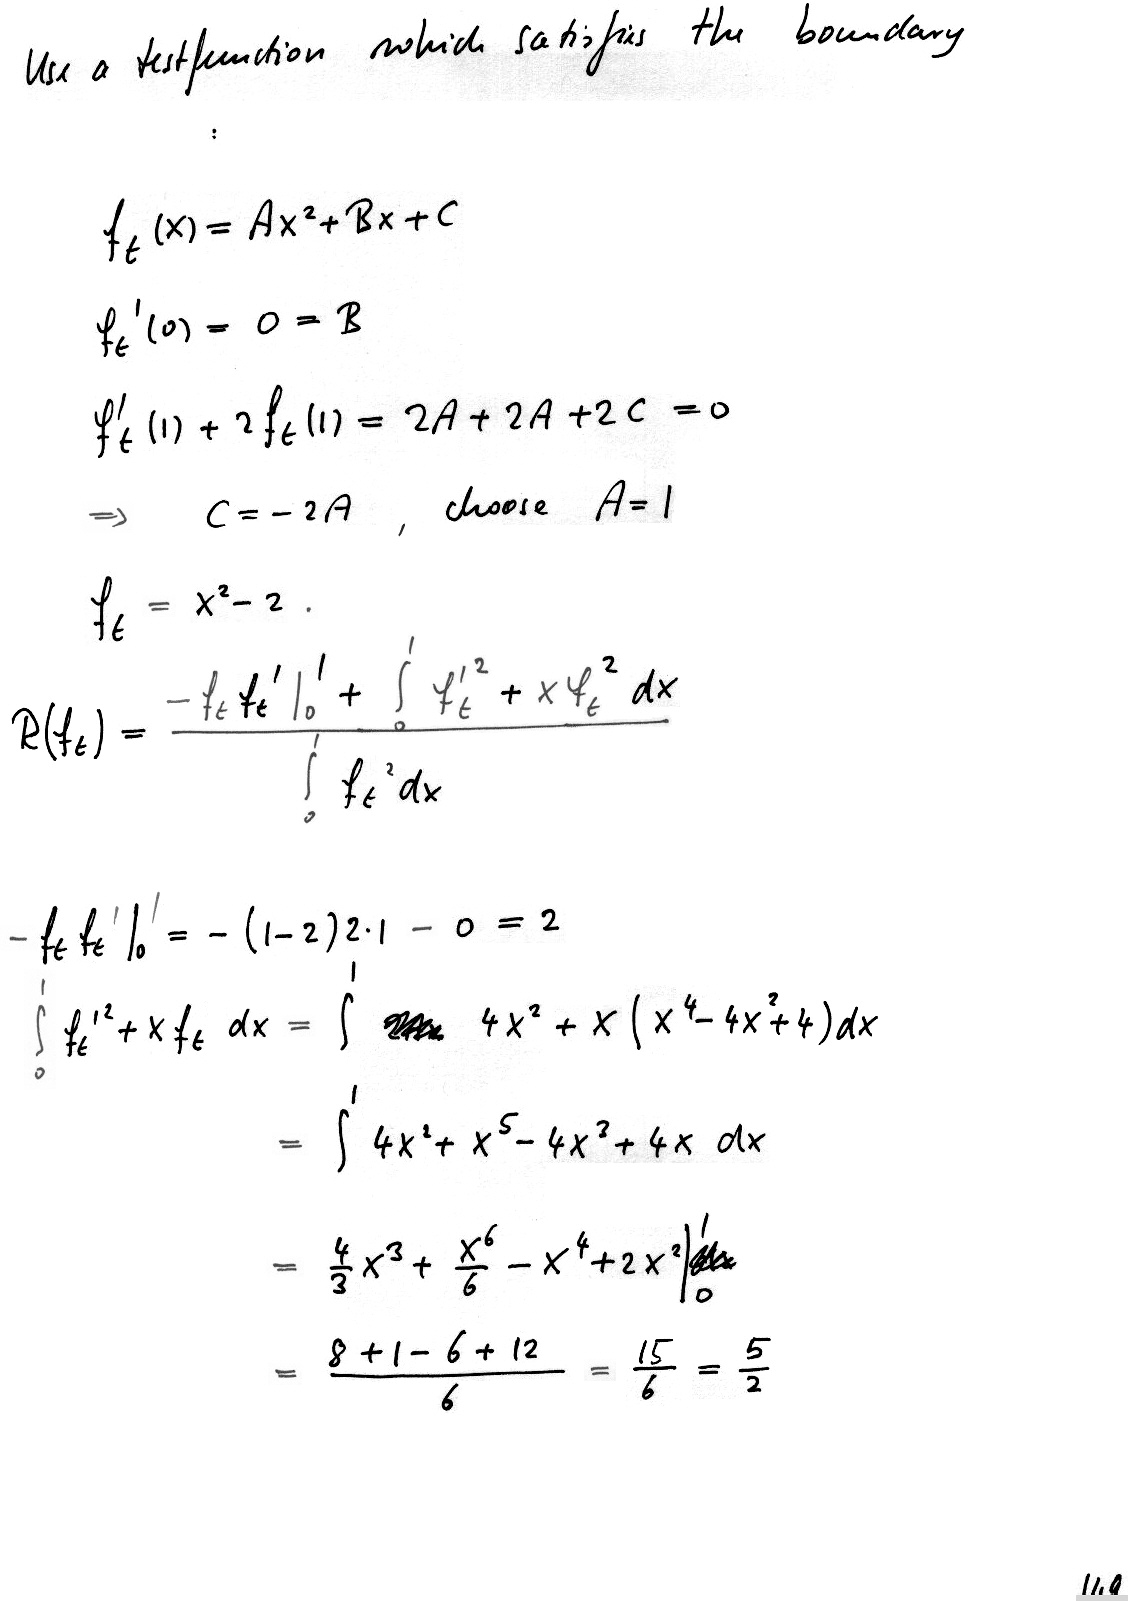 Use a testfunction which satisfies the boundary
:
f_t (x) = Ax² + Bx + C
f_t'(0) = 0 = B
f_t'(1) + 2 f_t(1) = 2A + 2A + 2C = 0
⇒ C = -2A , choose A = 1
f_t = x² - 2 .
R(f_t) = (-f_t f_t' |₀¹ + ∫₀¹ f_t'² + x f_t² dx) / (∫₀¹ f_t² dx)
- f_t f_t' |₀¹ = - (1-2) 2·1 - 0 = 2
∫₀¹ f_t'² + x f_t dx = ∫¹ 4x² + x (x⁴ - 4x² + 4) dx
= ∫¹ 4x² + x⁵ - 4x³ + 4x dx
= 4/3 x³ + x⁶/6 - x⁴ + 2x² |₀¹
= (8 + 1 - 6 + 12)/6 = 15/6 = 5/2